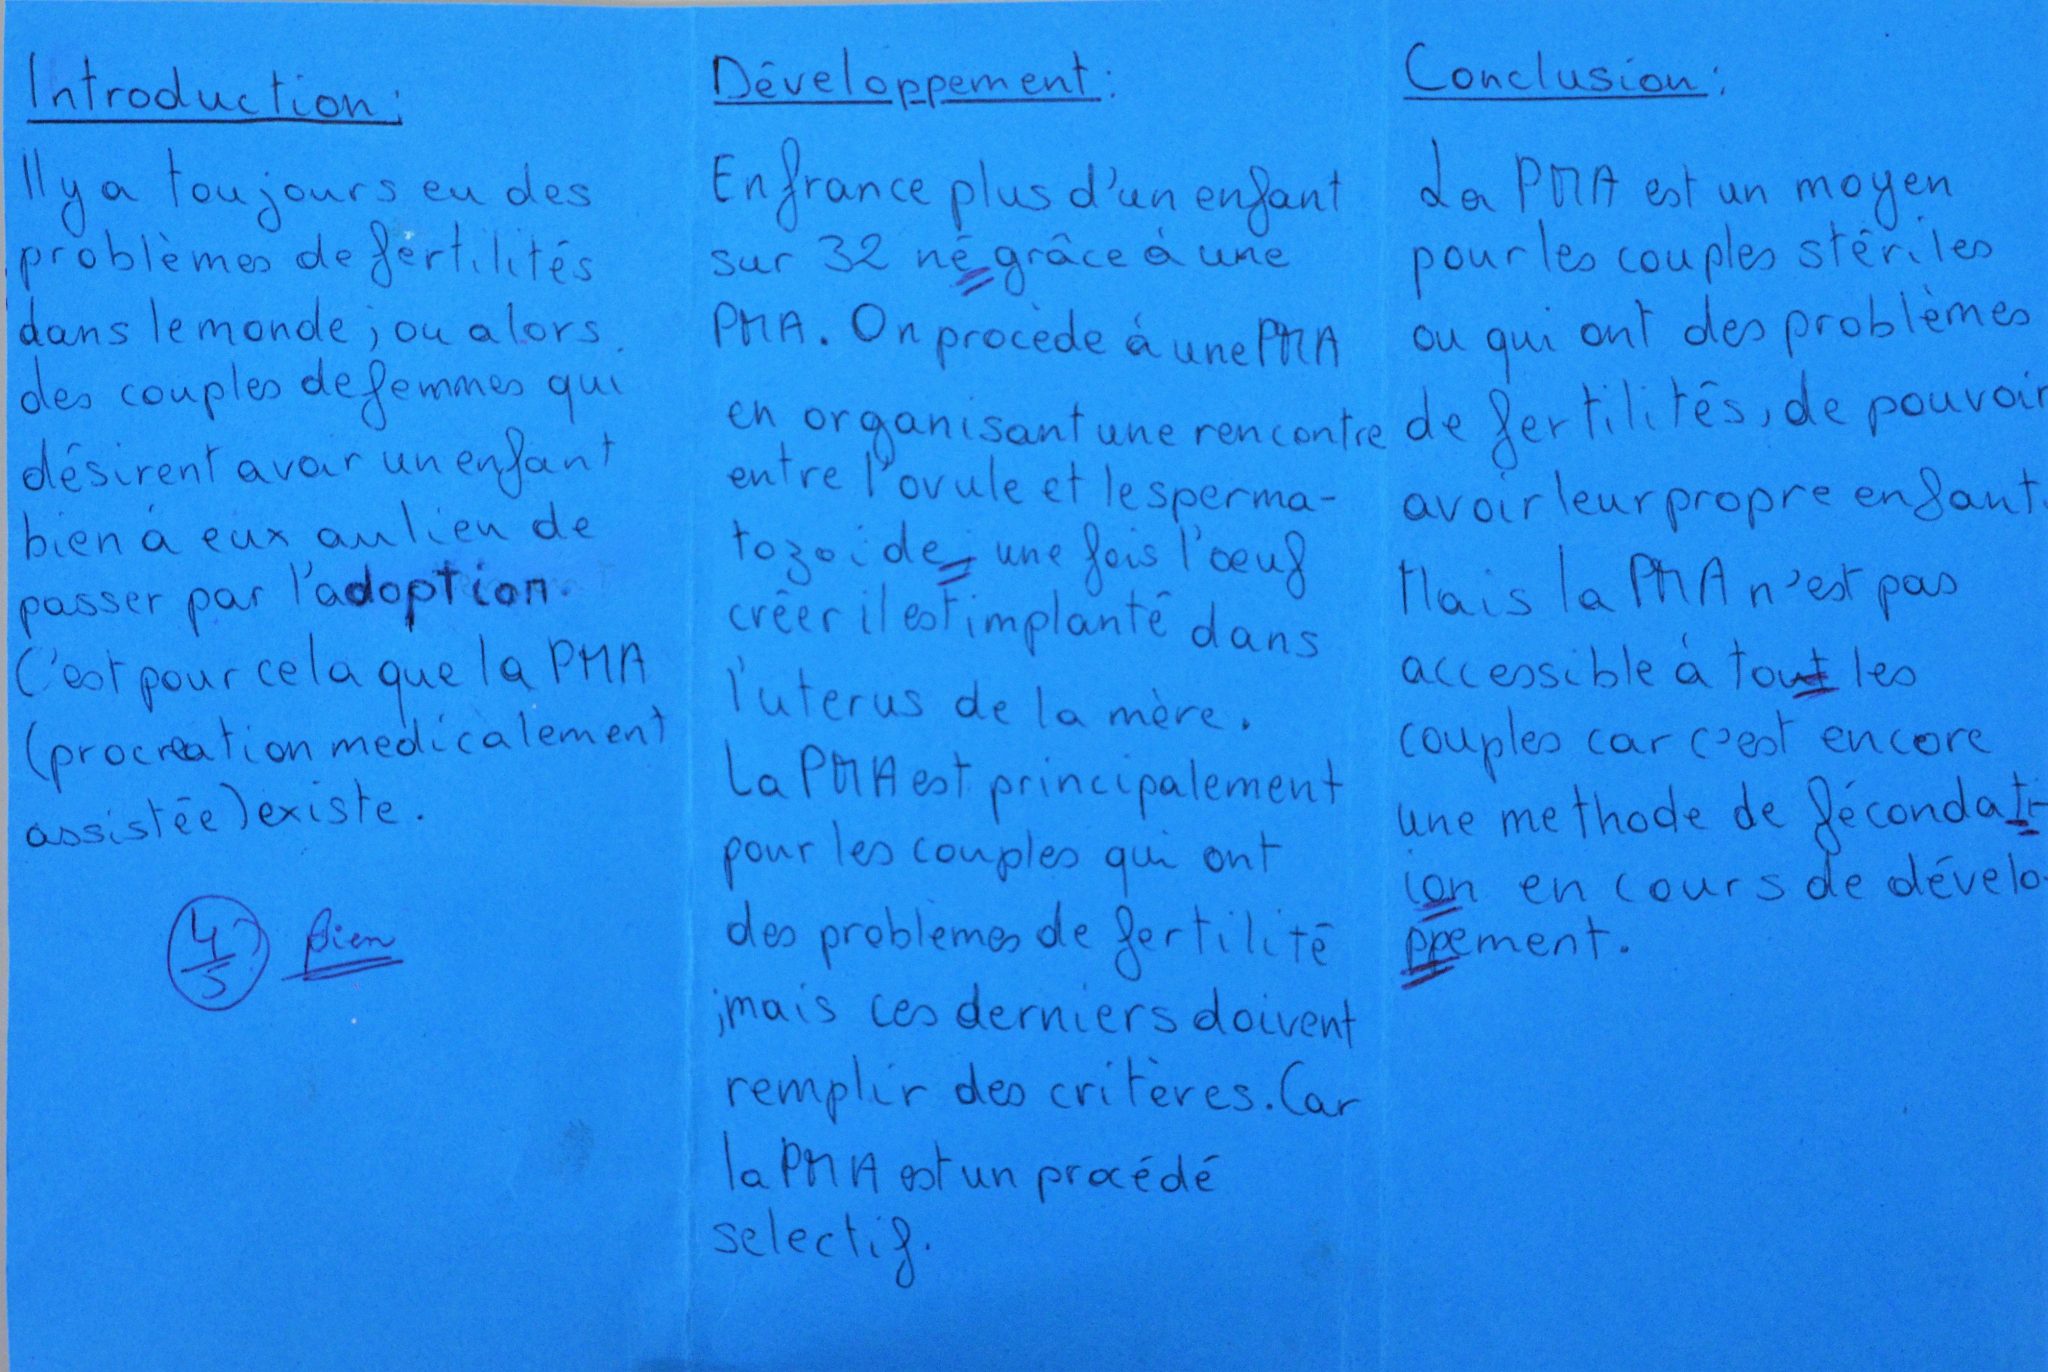 Introduction:
Il y a toujours eu des
problèmes de fertilités
dans le monde ; ou alors
des couples de femmes qui
désirent avoir un enfant
bien à eux au lieu de
passer par l'adoption.
C'est pour cela que la PMA
(procreation medicalement
assistée) existe.
4/5 Bien
Développement:
En france plus d'un enfant
sur 32 né grâce à une
PMA. On procède à une PMA
en organisant une rencontre
entre l'ovule et le sperma-
tozoide, une fois l'œuf
créer il est implanté dans
l'uterus de la mère.
La PMA est principalement
pour les couples qui ont
des problèmes de fertilité
;mais ces derniers doivent
remplir des critères. Car
la PMA est un procédé
selectif.
Conclusion:
La PMA est un moyen
pour les couples stériles
ou qui ont des problèmes
de fertilités, de pouvoir
avoir leur propre enfant.
Mais la PMA n'est pas
accessible à tout les
couples car c'est encore
une methode de fécondati-
ion en cours de dévelo-
ppement.